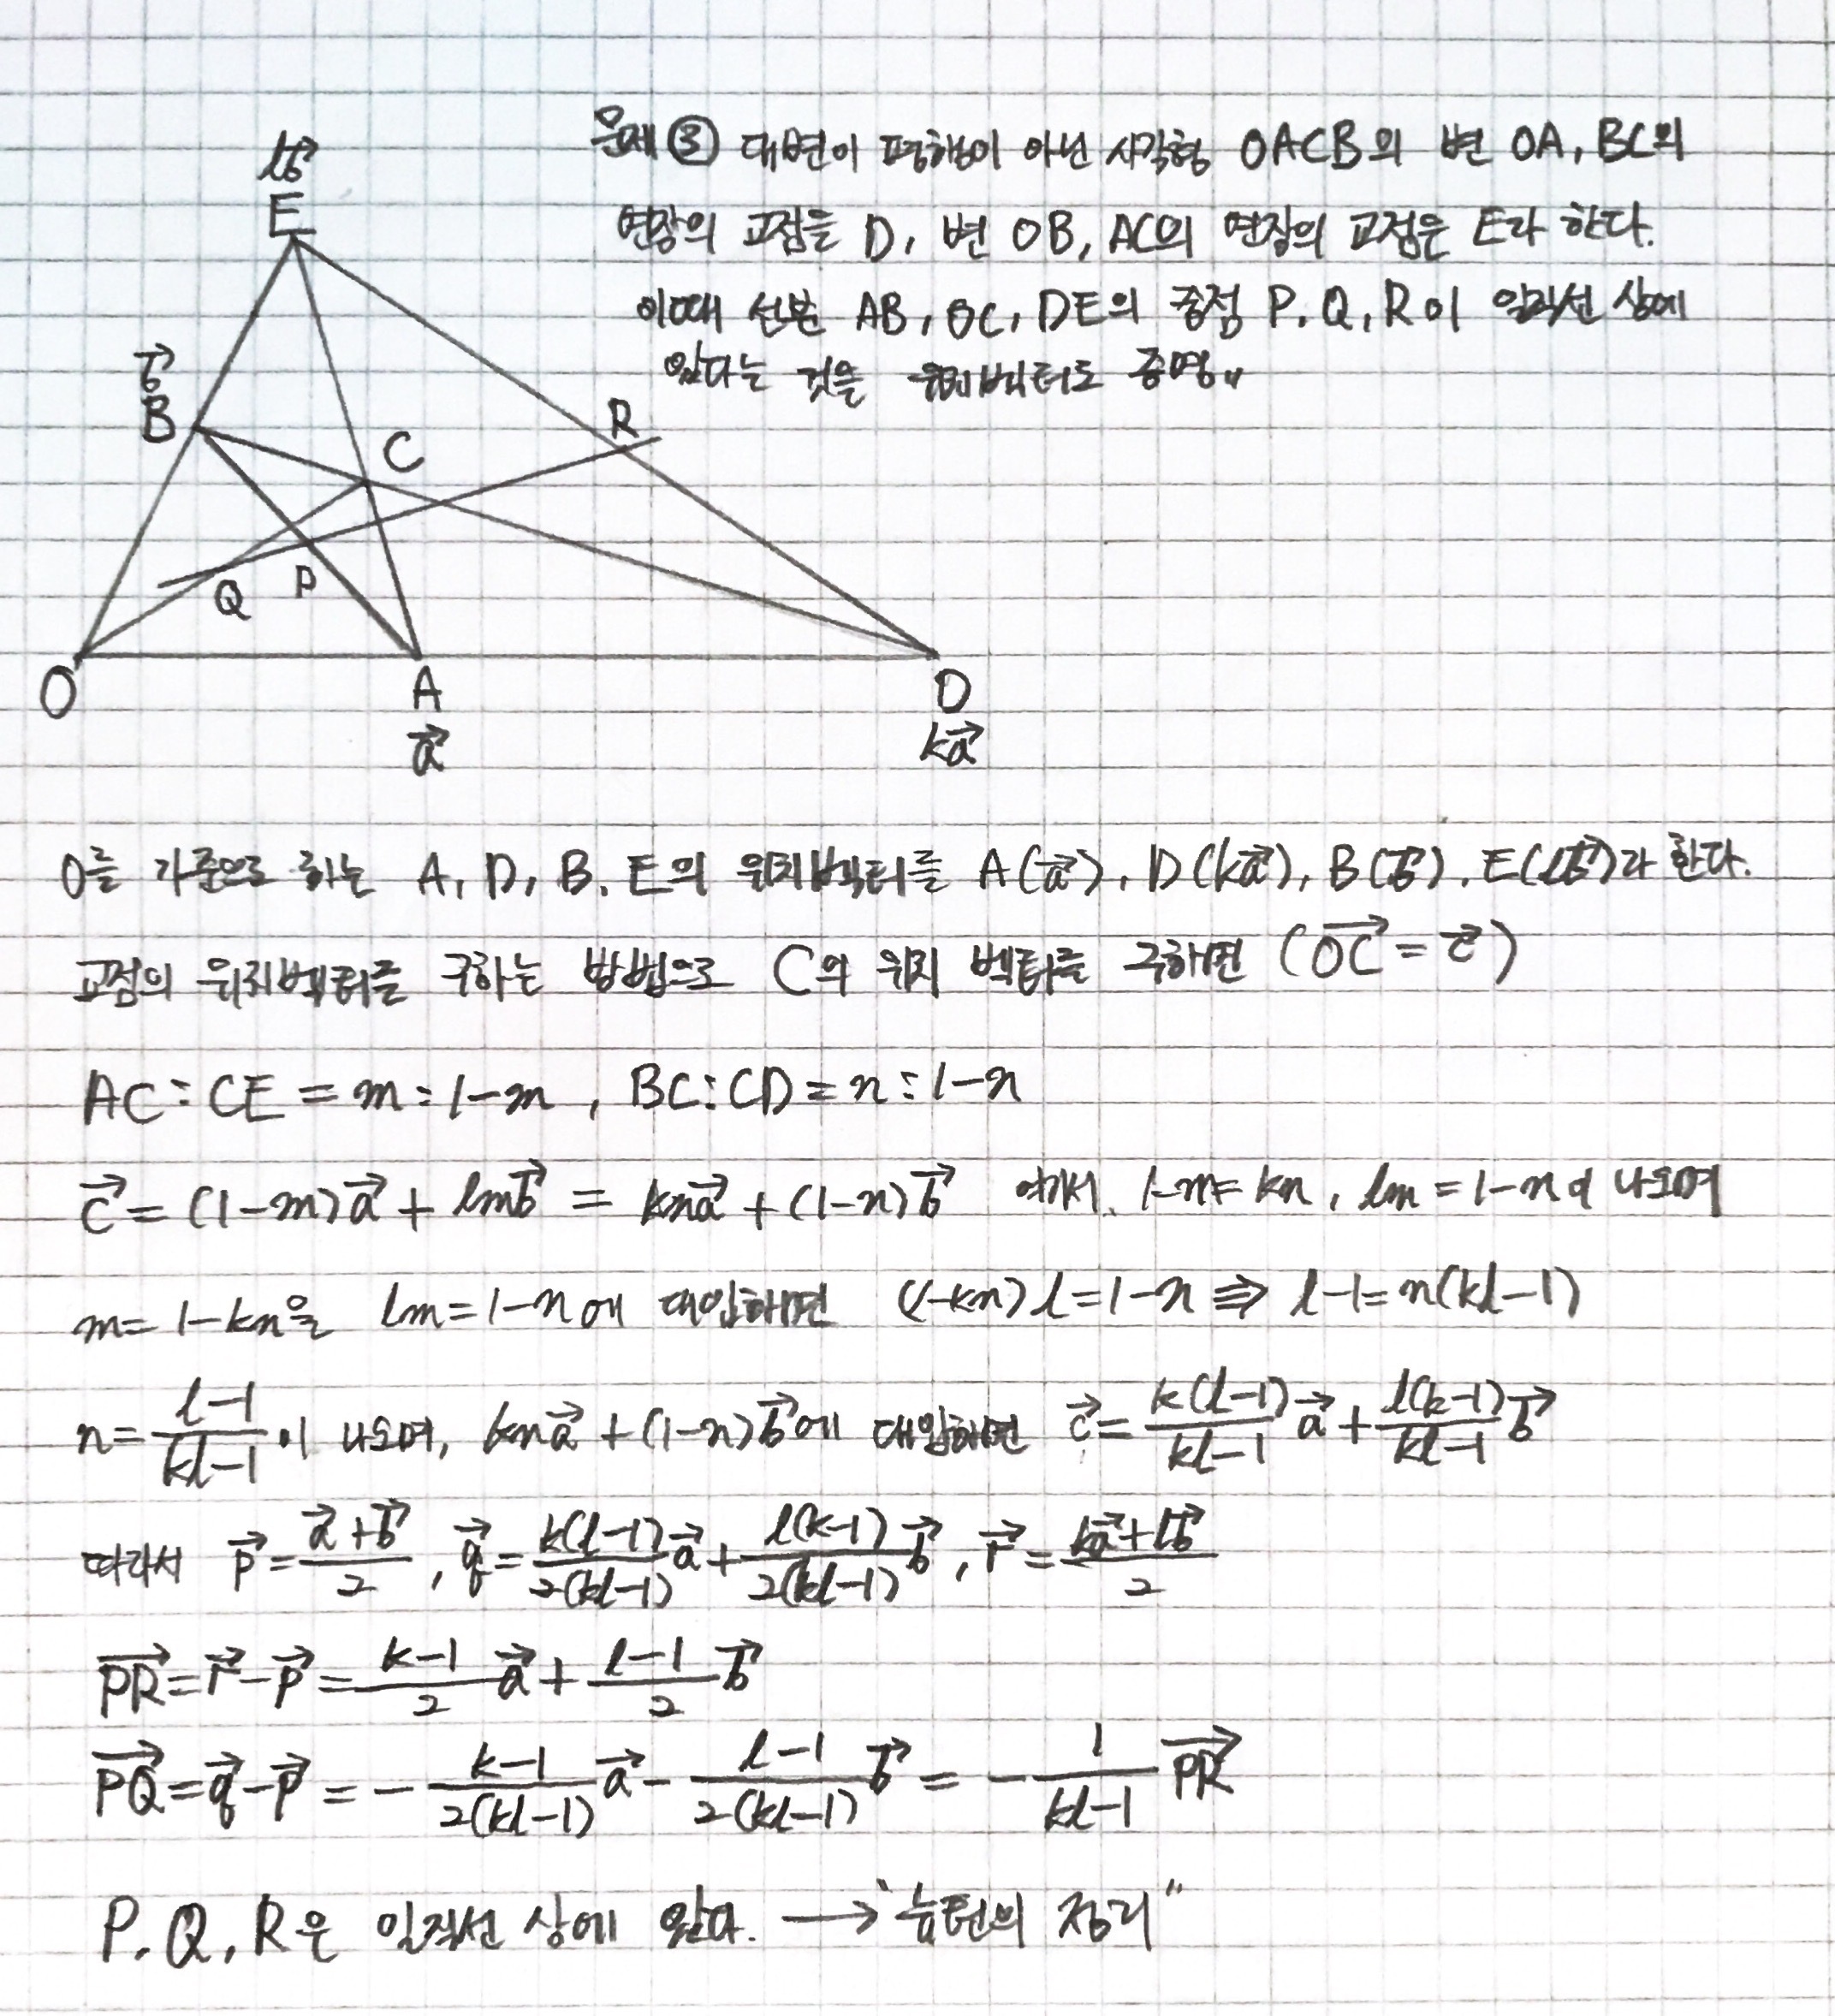 문제 ③ 대변이 평행이 아닌 사각형 OACB의 변 OA, BC의
연장의 교점을 D, 변 OB, AC의 연장의 교점은 E라 한다.
이때 선분 AB, OC, DE의 중점 P, Q, R이 일직선 상에
있다는 것을 위치벡터로 증명〃
l\vec{b}
E
\vec{b}
B
C
R
Q
P
O
A
D
\vec{a}
k\vec{a}
O를 기준으로 하는 A, D, B, E의 위치벡터를 A(\vec{a}), D(k\vec{a}), B(\vec{b}), E(l\vec{b})라 한다.
교점의 위치벡터를 구하는 방법으로 C의 위치 벡터를 구하면 (\overrightarrow{OC} = \vec{c})
AC : CE = m : 1-m , BC : CD = n : 1-n
\vec{c} = (1-m)\vec{a} + lm\vec{b} = kn\vec{a} + (1-n)\vec{b} 여기서, 1-m = kn, lm = 1-n이 나오며
m = 1-kn을 lm = 1-n에 대입하면 (1-kn)l = 1-n ⇒ l-1 = n(kl-1)
n = \frac{l-1}{kl-1}이 나오며, kn\vec{a} + (1-n)\vec{b}에 대입하면 \vec{c} = \frac{k(l-1)}{kl-1}\vec{a} + \frac{l(k-1)}{kl-1}\vec{b}
따라서 \vec{p} = \frac{\vec{a}+\vec{b}}{2}, \vec{q} = \frac{k(l-1)}{2(kl-1)}\vec{a} + \frac{l(k-1)}{2(kl-1)}\vec{b}, \vec{r} = \frac{k\vec{a}+l\vec{b}}{2}
\overrightarrow{PR} = \vec{r} - \vec{p} = \frac{k-1}{2}\vec{a} + \frac{l-1}{2}\vec{b}
\overrightarrow{PQ} = \vec{q} - \vec{p} = -\frac{k-1}{2(kl-1)}\vec{a} - \frac{l-1}{2(kl-1)}\vec{b} = -\frac{1}{kl-1}\overrightarrow{PR}
P, Q, R은 일직선 상에 있다. → "뉴턴의 정리"